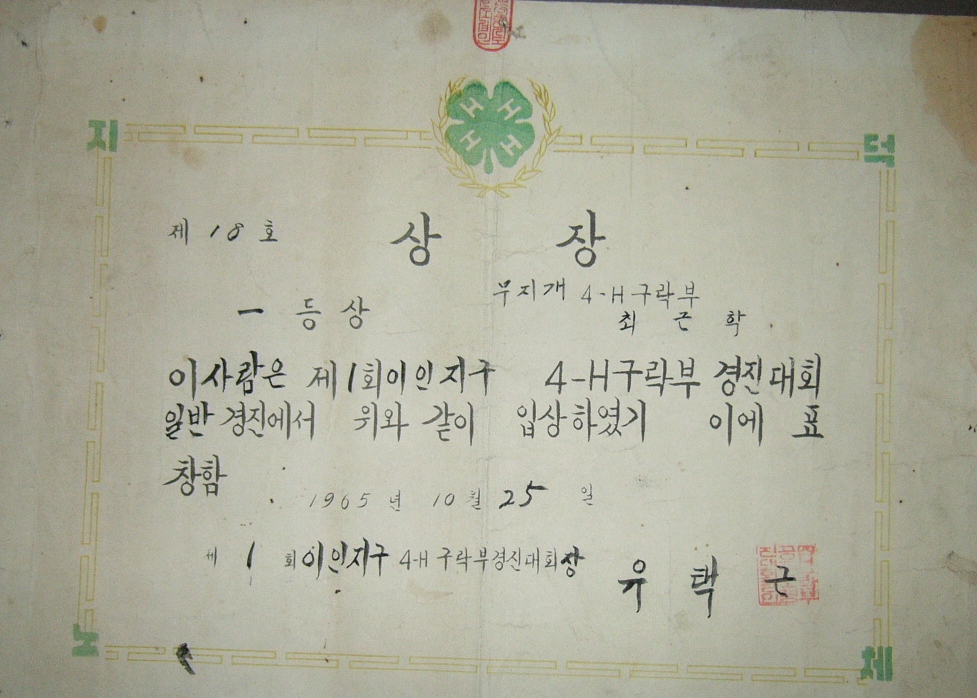 H H H H
지 덕
제 18 호
상 장
무지개 4-H구락부
一 등 상
최 근 학
이사람은 제1회이인지구 4-H구락부 경진대회
일반 경진에서 위와 같이 입상하였기 이에 표
창함
1965년 10월 25일
제 1 회이인지구 4-H구락부경진대회장 유 택 근
노 체